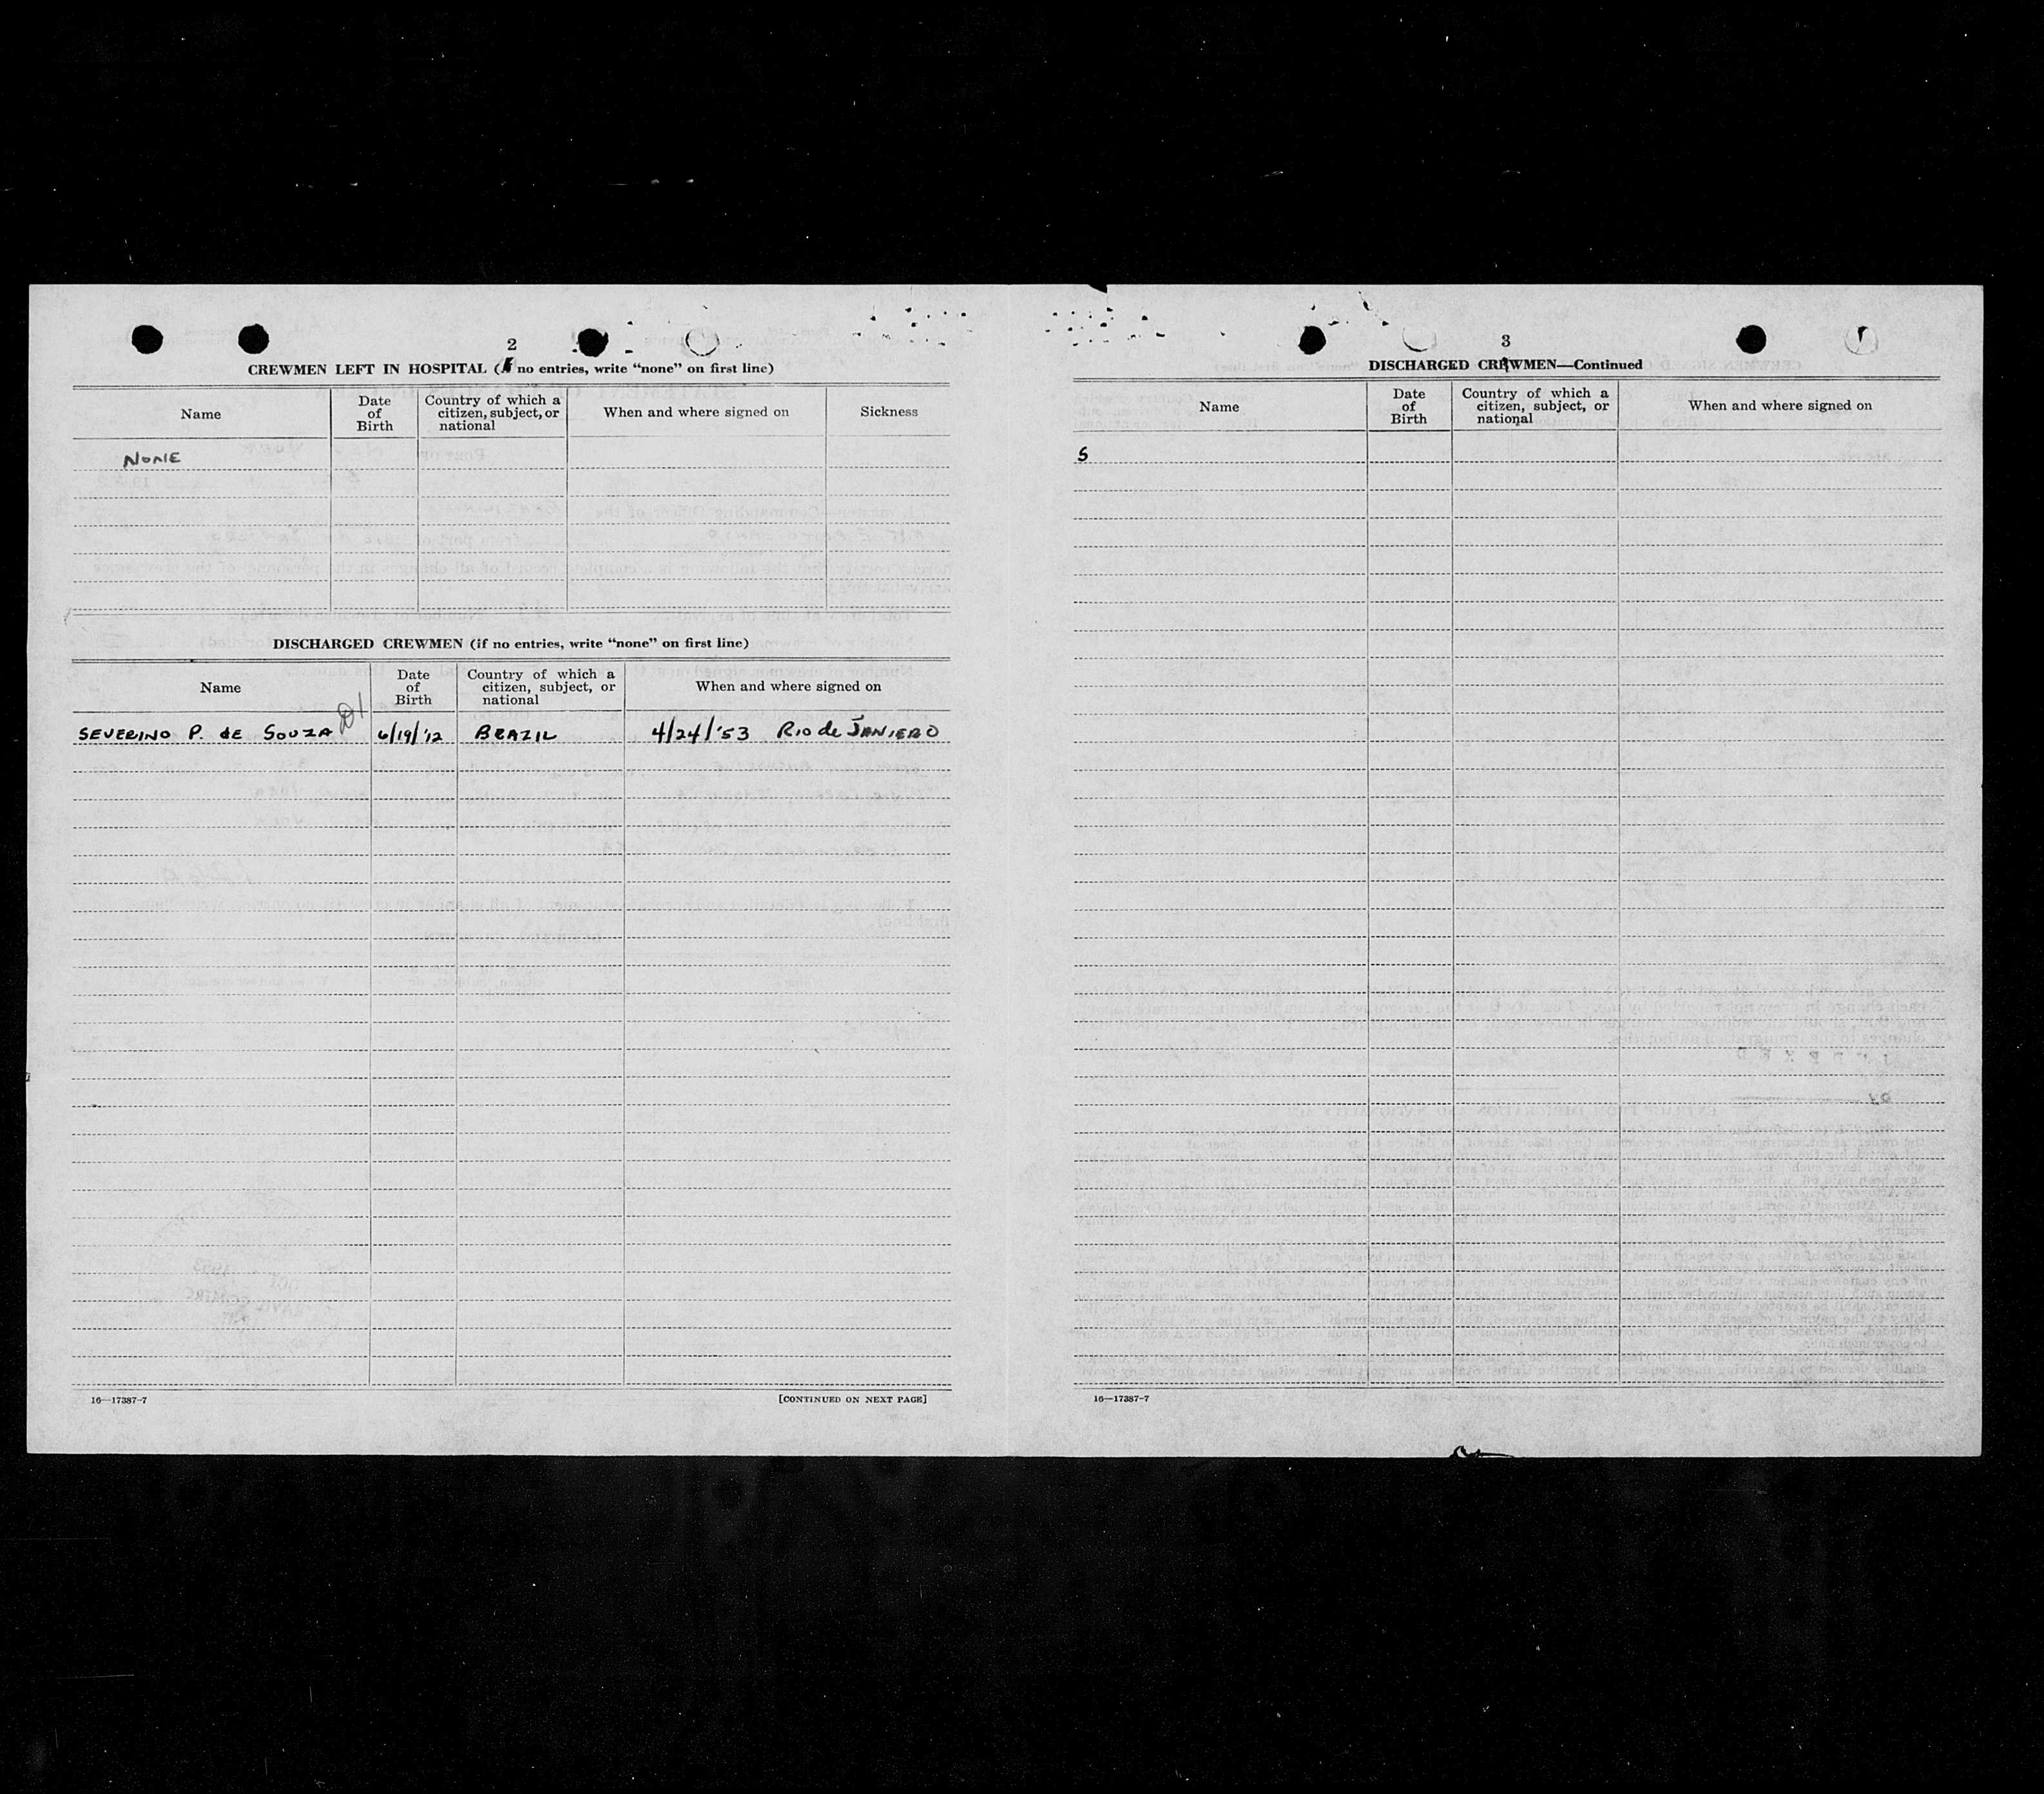 2
CREWMEN LEFT IN HOSPITAL (if no entries, write “none” on first line)
Name Date of Birth Country of which a citizen, subject, or national When and where signed on Sickness
NONE
DISCHARGED CREWMEN (if no entries, write “none” on first line)
Name Date of Birth Country of which a citizen, subject, or national When and where signed on
SEVERINO P. de SOUZA D1 6/19/'12 BRAZIL 4/24/'53 RIO de JANIERO
16—17387-7 [CONTINUED ON NEXT PAGE]
3
DISCHARGED CREWMEN—Continued
Name Date of Birth Country of which a citizen, subject, or national When and where signed on
S
16—17387-7